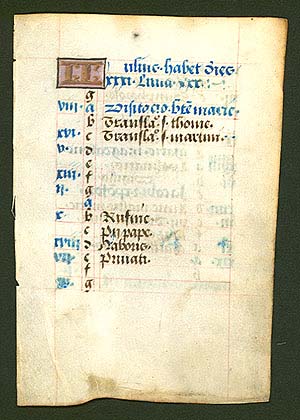 KL ulius habet dies
xxxi. Luna xxx.
g
viii. a Visitacio bte marie.
b Transla. s. thome.
xvi. c Transla. s. martini.
v. d
e
xiii. f
ii. g
a
x. b Rufine.
c Pii pape.
xviii. d Naboris.
vii. e Privati.
f
g